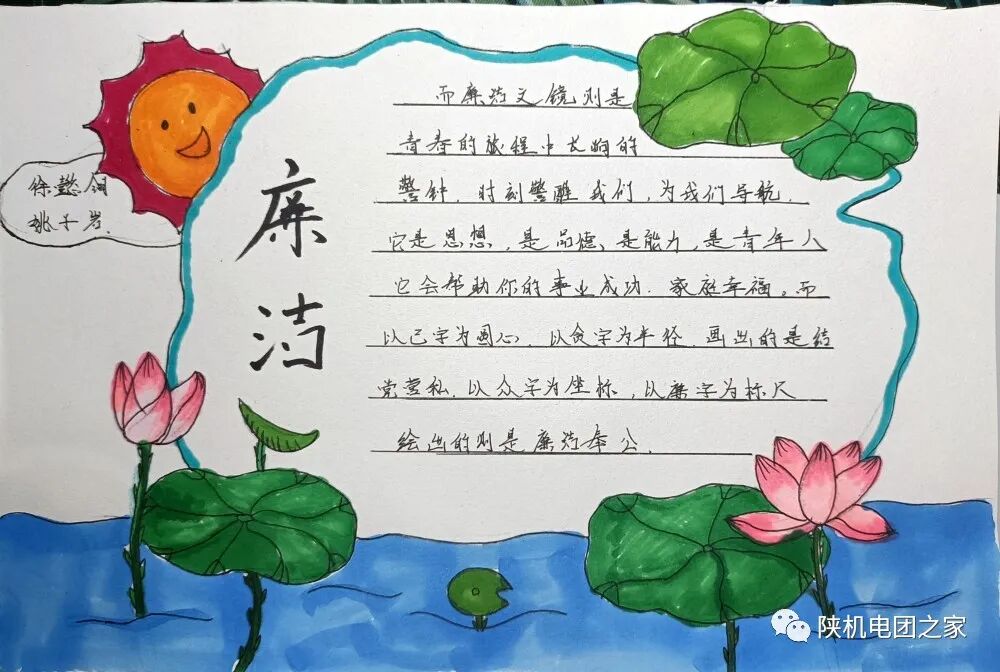 徐懿
姚子岩.
廉
洁
而廉洁文镜则是
青春的旅程中长响的
警钟.时刻警醒我们,为我们导航.
它是思想,是品德、是能力,是青年人
它会帮助你的事业成功.家庭幸福。而
以己字为圆心.以贪字为半径.画出的是结
党营私.以众字为坐标,以廉字为标尺
绘出的则是廉洁奉公.
陕机电团之家